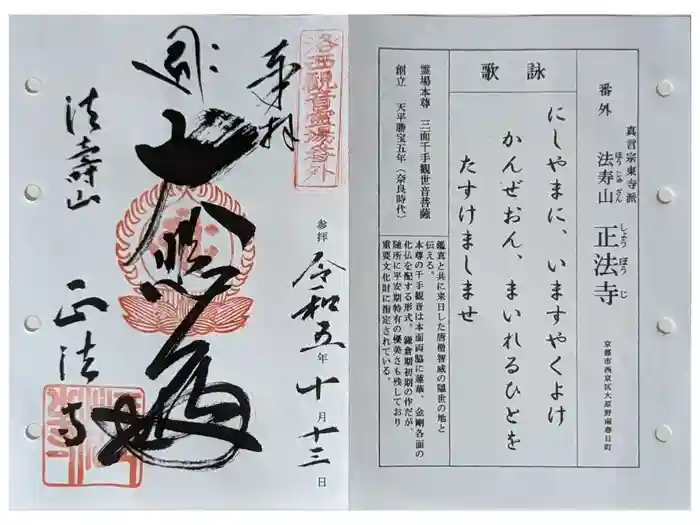 番外
真言宗東寺派
法寿山 正法寺
ほうじゅざん しょうぼうじ
京都市西京区大原野南春日町
詠歌
にしやまに、いますやくよけ
かんぜおん、まいれるひとを
たすけましませ
霊場本尊 三面千手観世音菩薩
創立 天平勝宝五年(奈良時代)
鑑真と共に来日した唐僧智威の隠世の地と
伝える。
本尊の千手観音は本面両脇に蓮華、金剛各面の
化仏を配する形式。鎌倉期初期の作だが、
随所に平安期特有の優美さも残しており
重要文化財に指定されている。
洛西観音霊場番外
奉拝
参拝 令和五年十月十三日
大悲殿
法寿山
正法寺